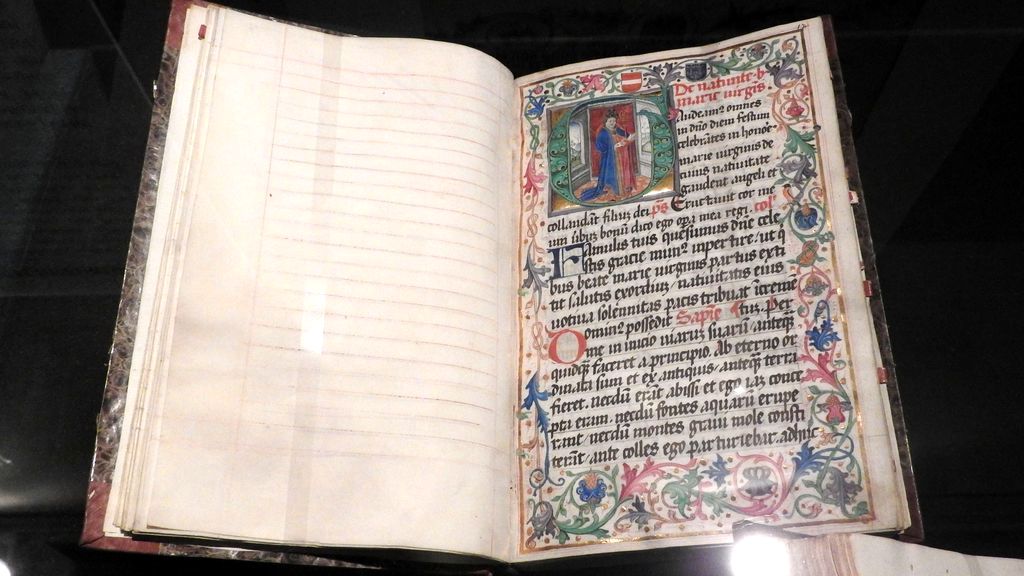 De natiuite b
marie uirgis.
Gaudeam9 omnes
in dn̄o diem festum
celebrātes in honōe
marie uirginis de
cuius natiuitate
gaudent angeli et
collaudāt filiuȝ dei. ps Eructauit cor me
um ūbuȝ bonū dico ego opa mea regi. col̄
Famulis tuis quesumus dn̄e cele
stis gracie mun9 inpertire. ut q̄
bus beate marie uirginis partus exti
tit salutis exordiuȝ natiuitatis eius
uotiua solennitas pacis tribuat īcremē
Domin9 possedit Sapiē tuȝ. Per
me in inicio uiaruȝ suarū. anteq̄ȝ
quidq̄ȝ faceret a principio. Ab eterno or
dinata sum et ex antiquis. anteq̄ȝ terra
fieret. necdū erāt abissi et ego iaȝ conce
pta eram. necdū fontes aquarū erupe
rant. necdū montes graui mole consti
terāt. ante colles ego parturiebar. adhuc